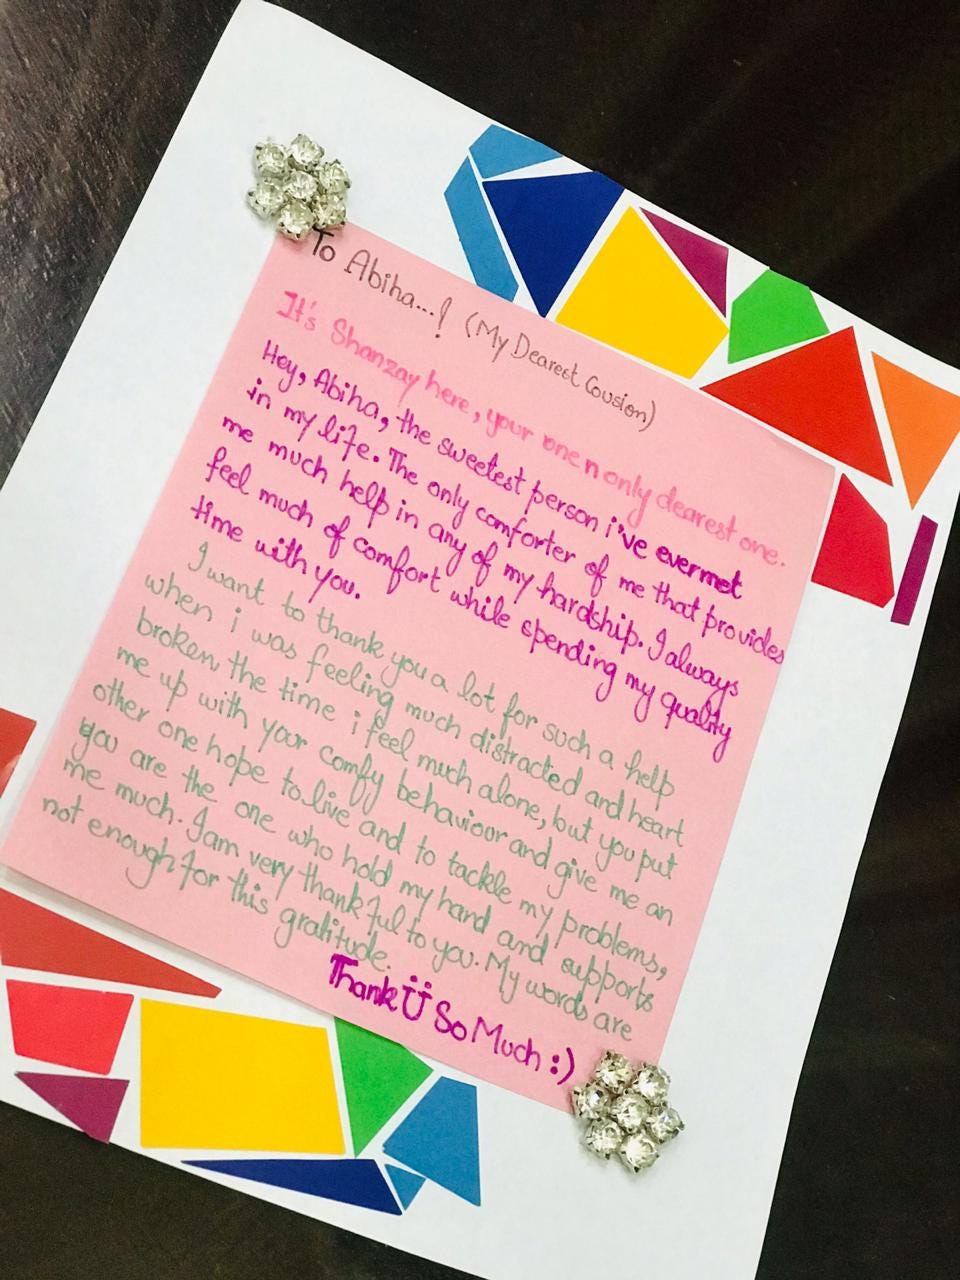 To Abiha...! (My Dearest Cousion)
It's Shanzay here, your one n only dearest one.
Hey, Abiha, the sweetest person i've evermet
in my life. The only comforter of me that provides
me much help in any of my hardship. I always
feel much of comfort while spending my quality
time with you.
I want to thank you a lot for such a help
when i was feeling much distracted and heart
broken, the time i feel much alone, but you put
me up with your comfy behaviour and give me an
other one hope to live and to tackle my problems,
you are the one who hold my hand and supports
me much. I am very thankful to you. My words are
not enough for this gratitude.
Thank Ü So Much :)